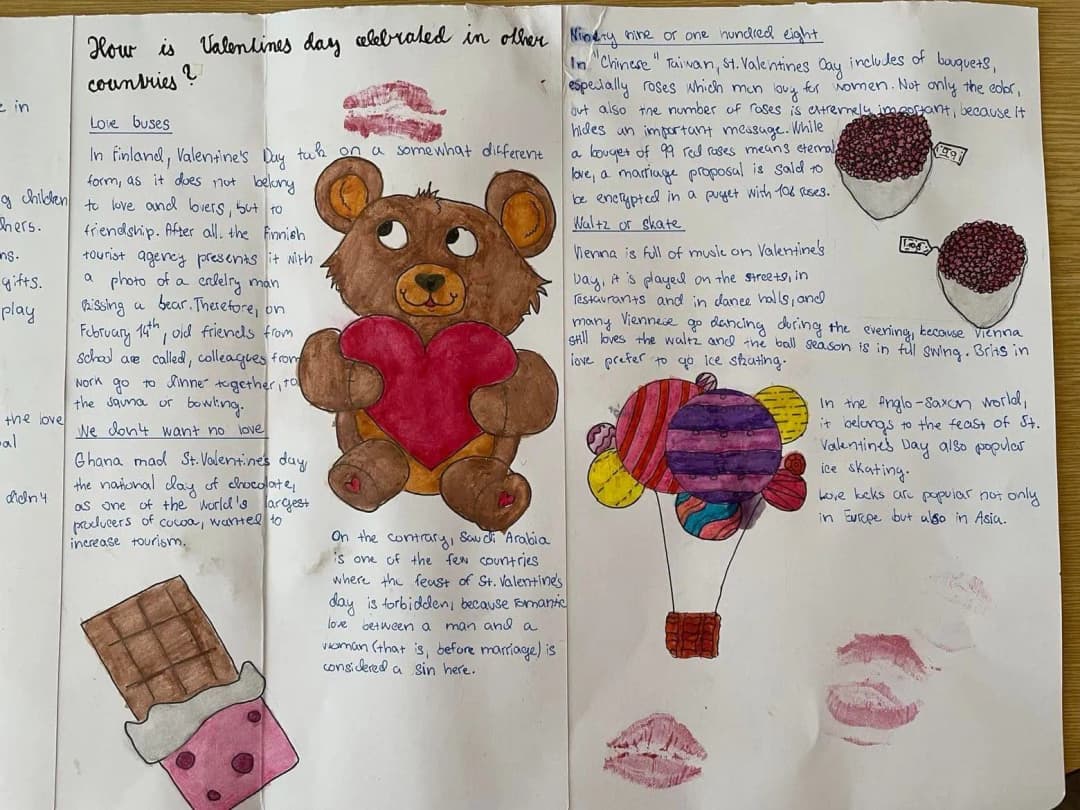 e in
g children
hers.
ns.
gifts.
play
the love
al
didn't
How is Valentines day celebrated in other
countries?
Love buses
In Finland, Valentine's Day took on a somewhat different
form, as it does not belong
to love and lovers, but to
friendship. After all, the Finnish
tourist agency presents it with
a photo of a elderly man
kissing a bear. Therefore, on
February 14th, old friends from
school are called, colleagues from
work go to dinner together, to
the sauna or bowling.
We don't want no love
Ghana mad St. Valentine's day,
the national day of chocolate,
as one of the world's largest
producers of cocoa, wanted to
increase tourism.
On the contrary, Saudi Arabia
is one of the few countries
where the feast of St. Valentine's
day is forbidden, because romantic
love between a man and a
woman (that is, before marriage) is
considered a sin here.
Ninety nine or one hundred eight
In "Chinese" Taiwan, St. Valentines Day includes of bouquets,
especially roses which men buy for women. Not only the color,
but also the number of roses is extremely important, because it
hides an important message. While
a bouqet of 99 red roses means eternal
love, a marriage proposal is said to
be encrypted in a puget with 108 roses.
99
108
Waltz or skate
Vienna is full of music on Valentine's
Day, it is played on the streets, in
restaurants and in dance halls, and
many Viennese go dancing during the evening, because Vienna
still loves the waltz and the ball season is in full swing. Brits in
love prefer to go ice skating.
In the Anglo-Saxon world,
it belongs to the feast of St.
Valentine's Day also popular
ice skating.
Love locks are popular not only
in Europe but also in Asia.